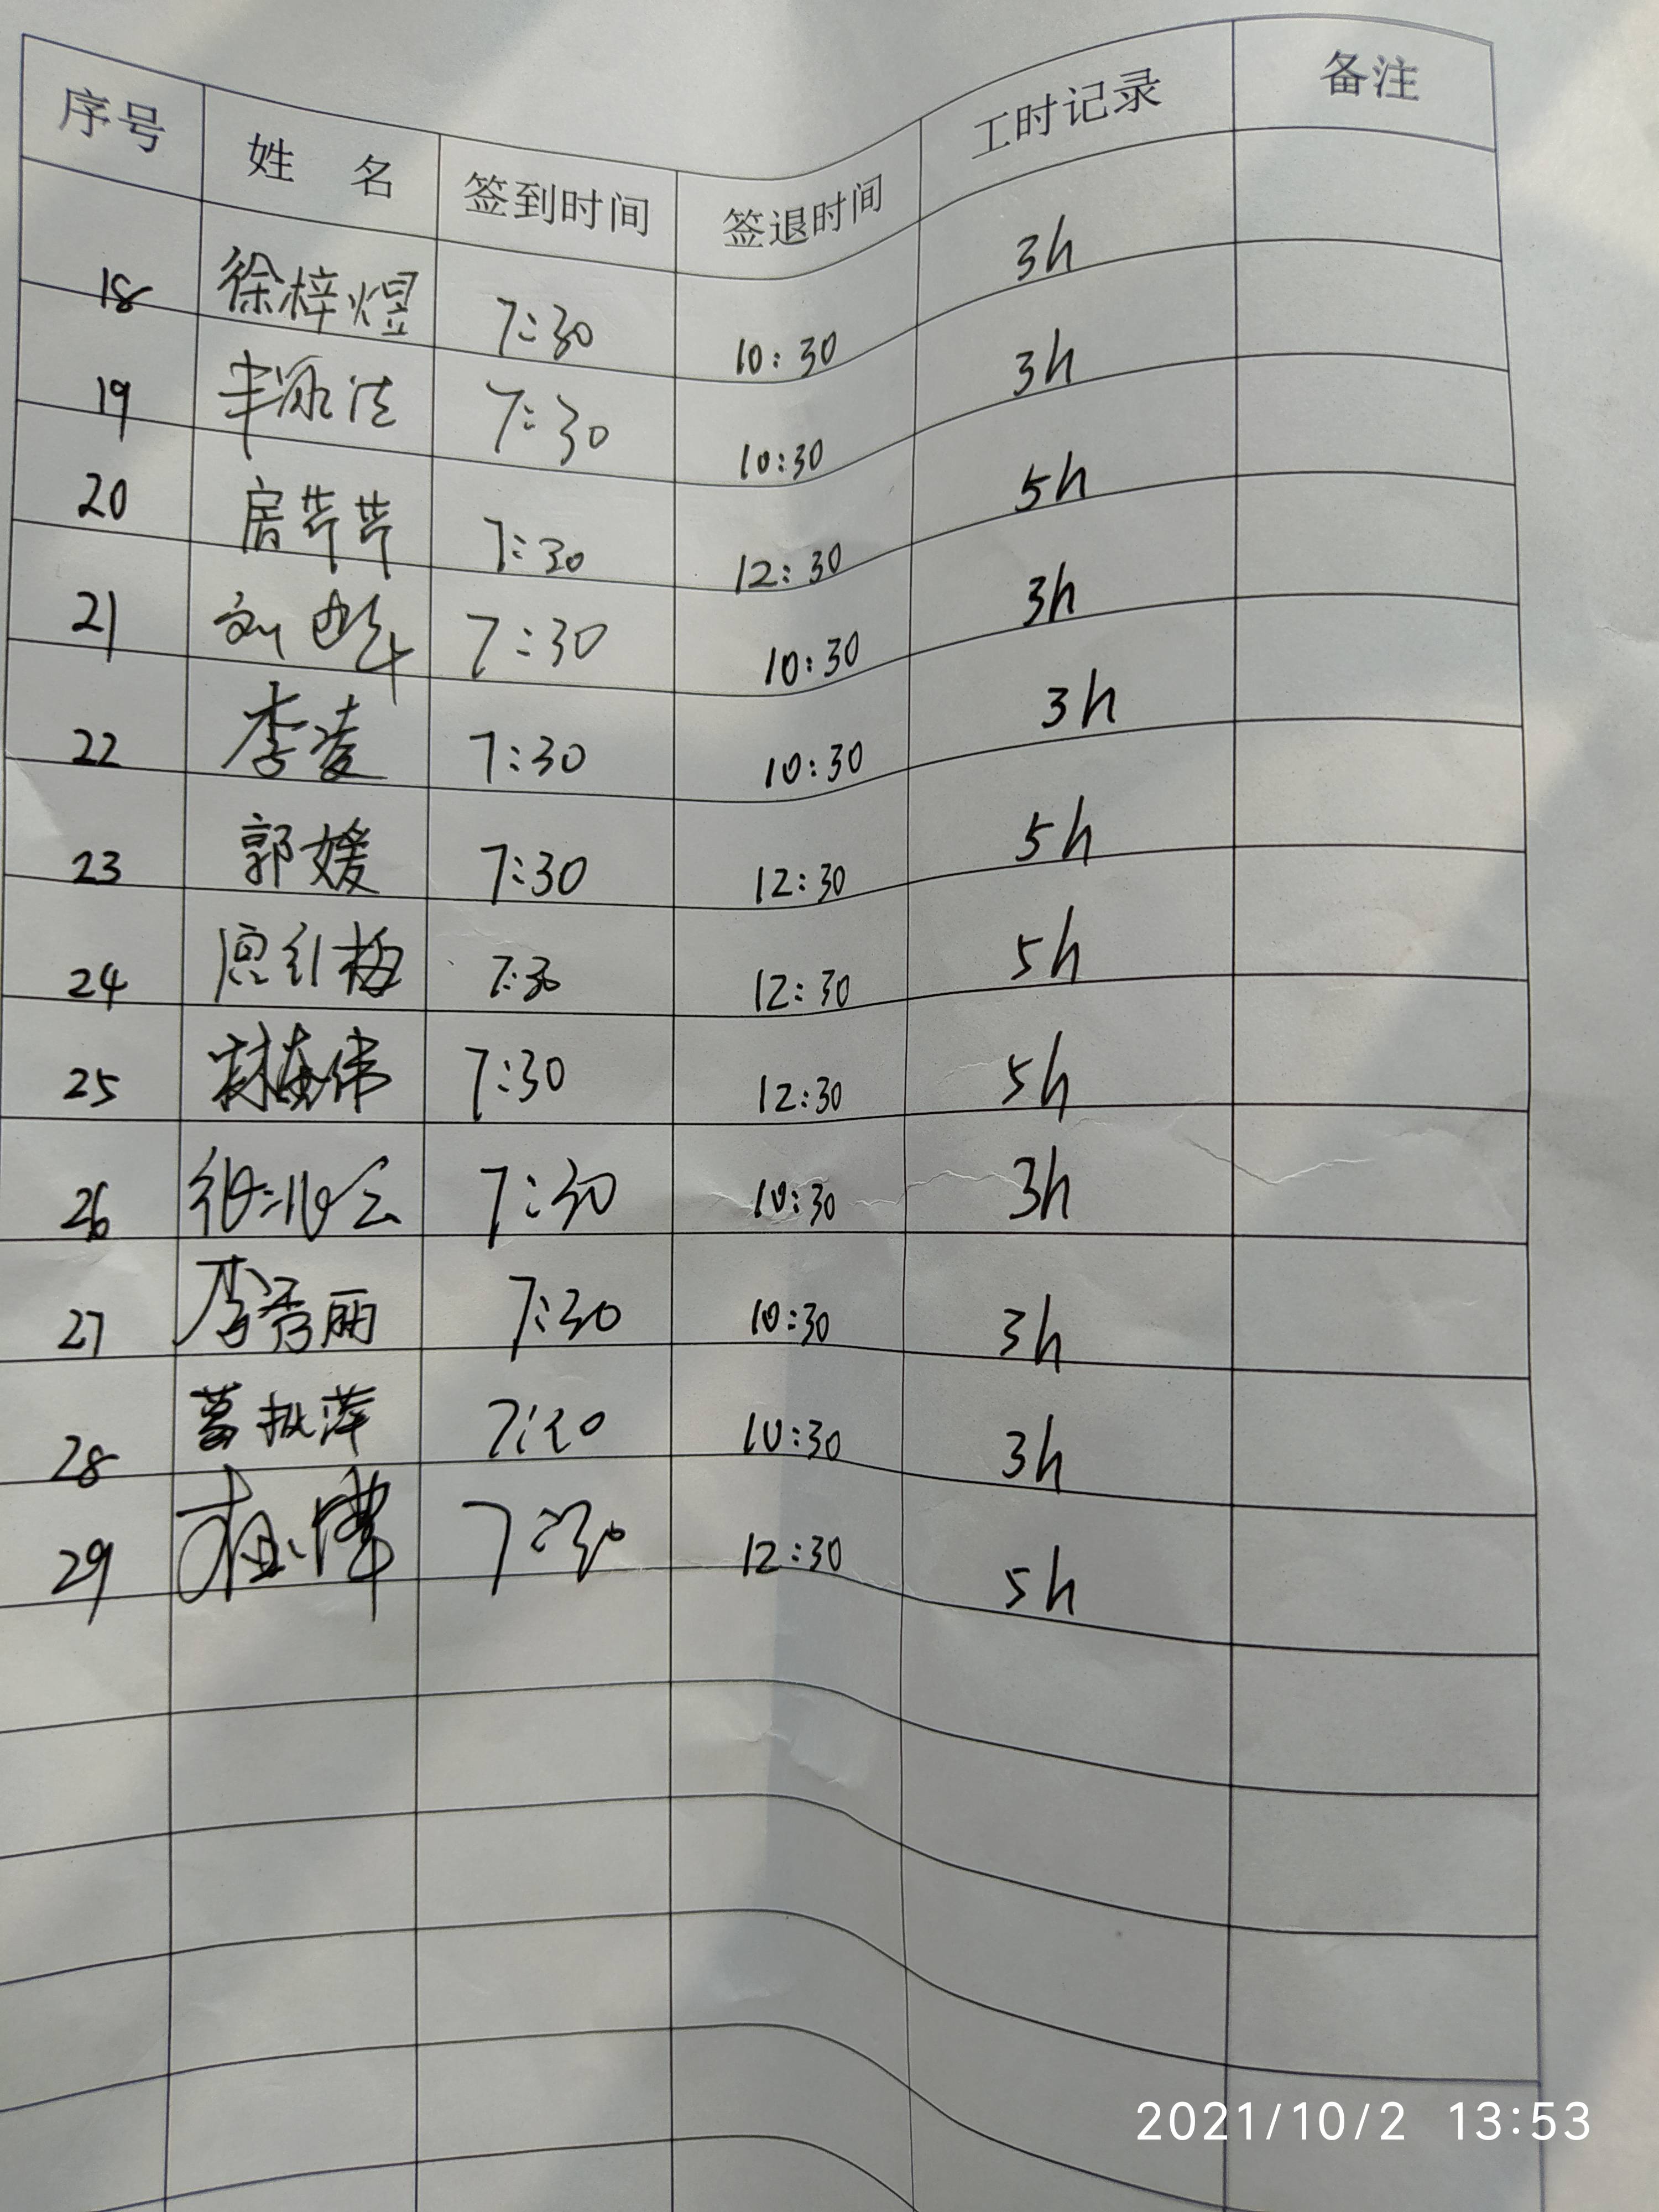 序号 姓 名 签到时间 签退时间 工时记录 备注
18 徐梓煜 7:30 10:30 3h
19 7:30 10:30 3h
20 房芹芹 7:30 12:30 5h
21 刘 7:30 10:30 3h
22 李凌 7:30 10:30 3h
23 郭媛 7:30 12:30 5h
24 7:30 12:30 5h
25 林海伟 7:30 12:30 5h
26 7:30 10:30 3h
27 李秀丽 7:30 10:30 3h
28 7:30 10:30 3h
29 7:30 12:30 5h
2021/10/2 13:53